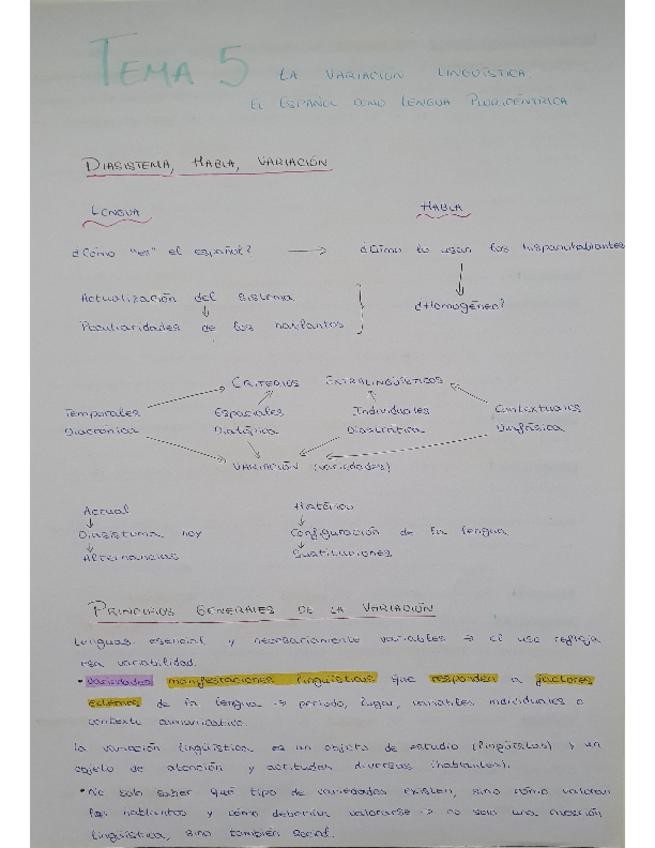 TEMA 5 LA VARIACIÓN LINGÜÍSTICA.
EL ESPAÑOL COMO LENGUA PLURICÉNTRICA
DIASISTEMA, HABLA, VARIACIÓN
LENGUA HABLA
¿Cómo "es" el español? → ¿Cómo lo usan los hispanohablantes
Actualización del sistema ¿Homogéneo?
Peculiaridades de los hablantes
CRITERIOS EXTRALINGÜÍSTICOS
Temporales Espaciales Individuales Contextuales
Diacrónica Diatópica Diastrática Diafásica
VARIACIÓN (variedades)
Actual Histórico
Diasistema hoy Configuración de la lengua
Alternancias Sustituciones
PRINCIPIOS GENERALES DE LA VARIACIÓN
Lenguas esencial y necesariamente variables → el uso refleja
esa variabilidad.
• Variedades manifestaciones lingüísticas que responden a factores
externos de la lengua → periodo, lugar, variables individuales o
contexto comunicativo.
La variación lingüística es un objeto de estudio (lingüistas) y un
objeto de atención y actitudes diversas (hablantes).
• No solo saber qué tipo de variedades existen, sino cómo valoran
los hablantes y cómo deberían valorarse → no solo una cuestión
lingüística, sino también social.